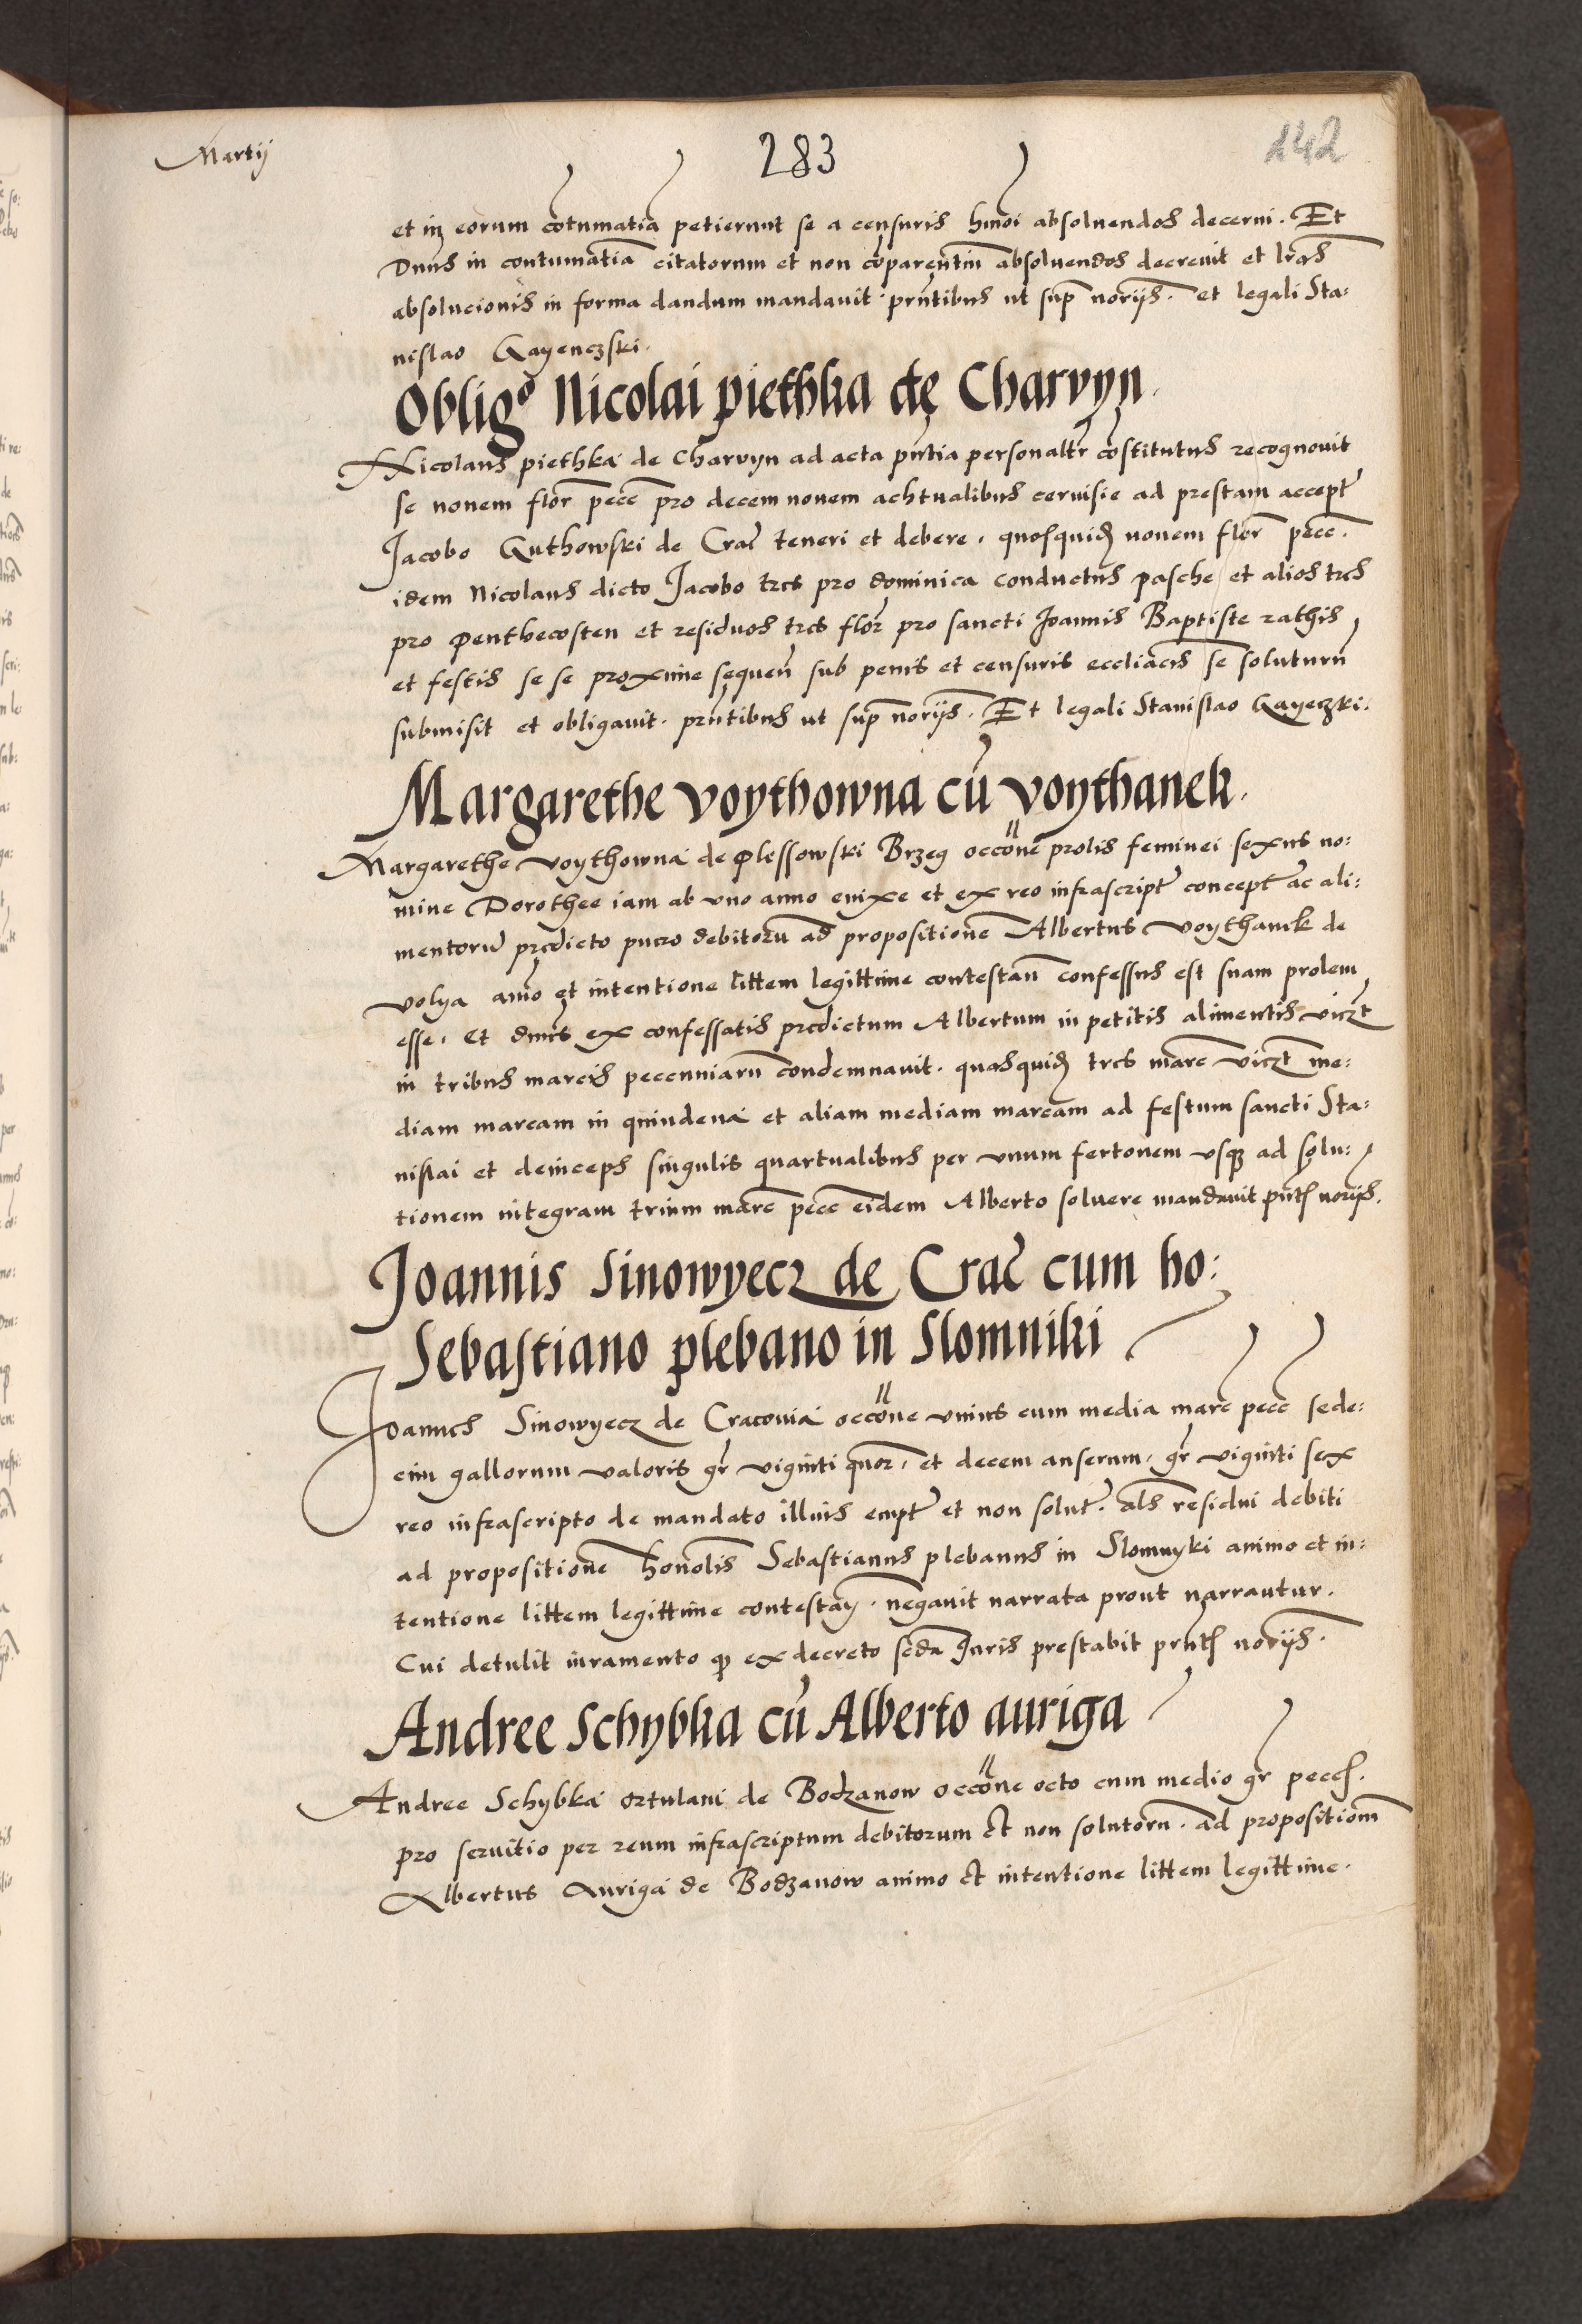 Martij
283
242
et in eorum cōtumatiā petierunt se a censuris hm̄oi absoluendos decerni. Et
Dnus in contumatiā citatorum et non cōparentiū absoluendos decreuit et lr̄as
absolucionis in forma dandum mandauit. prn̄tibus ut sup̄ norijs. et legali Sta:
nislao Gayenczski.
Oblig° Nicolai piethka de Charvyn.
Nicolaus piethka de Charvyn ad acta pn̄tia personaltr̄ cōstitutus recognouit
se nouem flor̄ pecc̄ pro decem nouem achtualibus ceruisie ad prestam accept̄
Jacobo Guthowski de Crac̄ teneri et debere. quosquid nouem flor̄ pecc̄.
idem Nicolaus dicto Jacobo tres pro dominica conductus pasche et alios tres
pro Penthecosten et residuos tres flor̄ pro sancti Joannis Baptiste rathis
et festis se se proxime sequen̄ sub penis et censuris eccliacis se soluturū
submisit et obligauit. prn̄tibus ut sup̄ norijs. Et legali Stanislao Gayeczki.
Margarethe voythowna cū voythanek.
Margarethe voythowna de Plessowski Brzeg occōne prolis feminei sexus no:
mine Dorothee iam ab vno anno enixe et ex reo infrascript̄ concept̄ ac ali:
mentorū predicto puero debitorū ad propositionē Albertus voythanek de
volya ānio et intentione littem legittime contestan̄ confessus est suam prolem
esse. Et dnus ex confessatis predictum Albertum in petitis alimentis viczt
in tribus marcis pecenniarū condemnauit. quasquid tres marc̄ viczt me:
diam marcam in quindena et aliam mediam marcam ad festum sancti Sta:
nislai et deinceps singulis quartualibus per vnum fertonem vsq ad solu:
tionem integram trium marc̄ pecc̄ eidem Alberto soluere mandauit pn̄t norijs.
Joannis Sinowyecz de Crac̄ cum ho:
Sebastiano plebano in Slomniki
Joannes Sinowyecz de Cracouia occōne vnius cum media marc̄ pecc̄ sede:
cim gallorum valoris gr̄ viginti quor̄. et decem anserum. gr̄ viginti sex
reo infrascripto de mandato illius empt̄ et non solut̄. als residui debiti
ad propositionē honolis Sebastianus plebanus in Slomnyki animo et in:
tentione littem legittime contestan̄. negauit narrata prout narrantur.
Cui detulit iuramento q ex decreto seda Juris prestabit prn̄t norijs.
Andree Schybka cū Alberto auriga
Andree Schybka ortulani de Bodzanow occōne octo cum medio gr̄ pecc.
pro seruitio per reum infrascriptum debitorum et non solutorū. ad propositionē
Albertus Auriga de Bodzanow animo et intentione littem legittime.